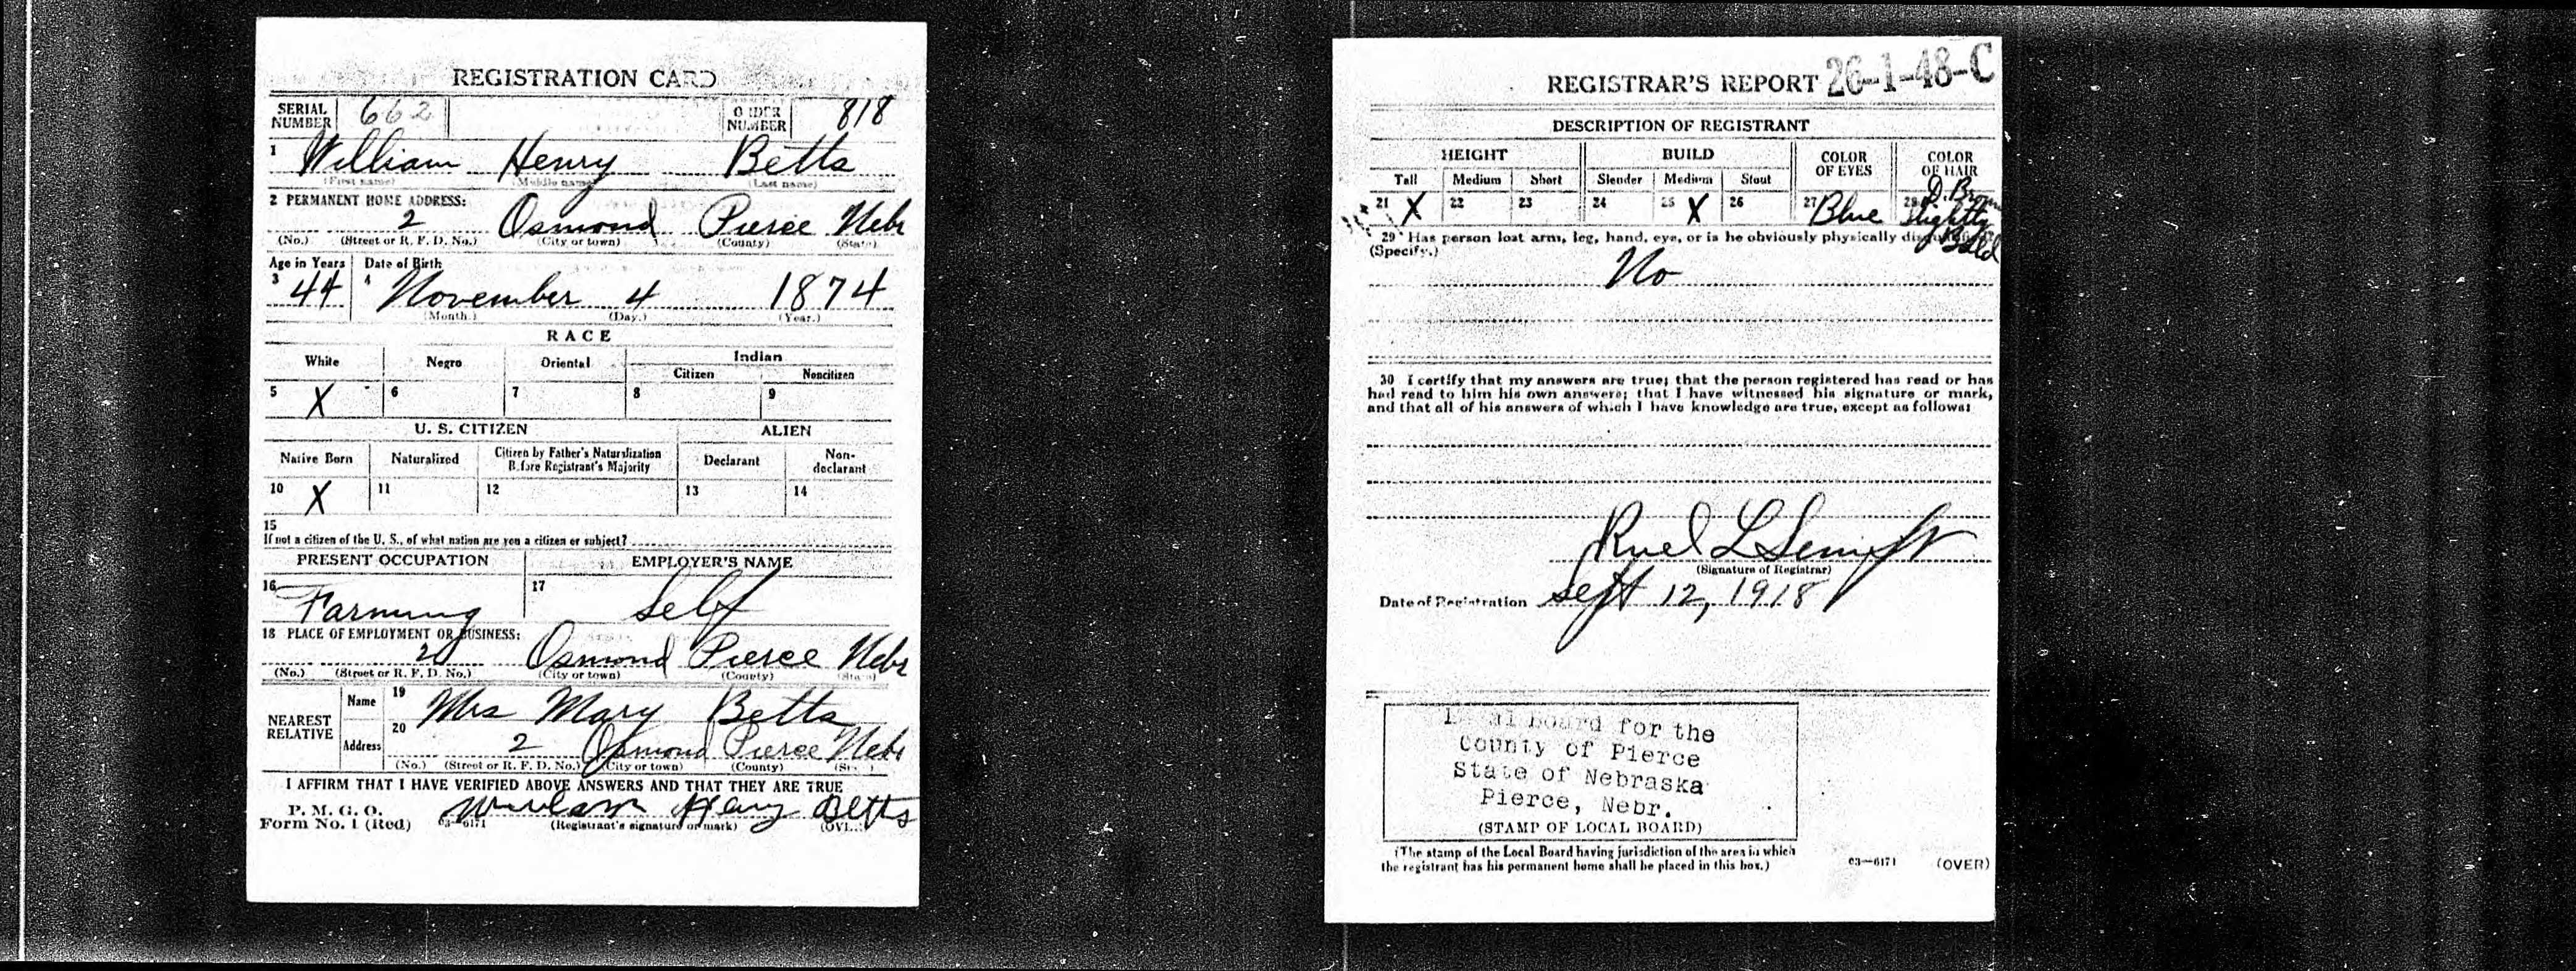 REGISTRATION CARD
SERIAL NUMBER 662 ORDER NUMBER 818
1 William Henry Betts
(First name) (Middle name) (Last name)
2 PERMANENT HOME ADDRESS:
2 Osmond Pierce Nebr
(No.) (Street or R. F. D. No.) (City or town) (County) (State)
Age in Years Date of Birth
3 44 4 November 4 1874
(Month.) (Day.) (Year.)
RACE
White Negro Oriental Indian
Citizen Noncitizen
5 X 6 7 8 9
U. S. CITIZEN ALIEN
Native Born Naturalized Citizen by Father's Naturalization Before Registrant's Majority Declarant Non-declarant
10 X 11 12 13 14
15
If not a citizen of the U. S., of what nation are you a citizen or subject?
PRESENT OCCUPATION EMPLOYER'S NAME
16 Farming 17 Self
18 PLACE OF EMPLOYMENT OR BUSINESS:
2 Osmond Pierce Nebr
(No.) (Street or R. F. D. No.) (City or town) (County) (State)
NEAREST RELATIVE Name 19 Mrs Mary Betts
Address 20 2 Osmond Pierce Nebr
(No.) (Street or R. F. D. No.) (City or town) (County) (State)
I AFFIRM THAT I HAVE VERIFIED ABOVE ANSWERS AND THAT THEY ARE TRUE
P. M. G. O.
Form No. 1 (Red) 03—6171 William Henry Betts
(Registrant's signature or mark) (OVER)
REGISTRAR'S REPORT 26-1-48-C
DESCRIPTION OF REGISTRANT
HEIGHT BUILD COLOR OF EYES COLOR OF HAIR
Tall Medium Short Slender Medium Stout
21 X 22 23 24 25 X 26 27 Blue 28 D. Brown Slightly Bald
29 Has person lost arm, leg, hand, eye, or is he obviously physically disqualified?
(Specify.)
No
30 I certify that my answers are true; that the person registered has read or has
had read to him his own answers; that I have witnessed his signature or mark,
and that all of his answers of which I have knowledge are true, except as follows:
Ruel L
(Signature of Registrar)
Date of Registration Sept 12, 1918
Local Board for the
County of Pierce
State of Nebraska
Pierce, Nebr.
(STAMP OF LOCAL BOARD)
(The stamp of the Local Board having jurisdiction of the area in which
the registrant has his permanent home shall be placed in this box.)
03—6171 (OVER)